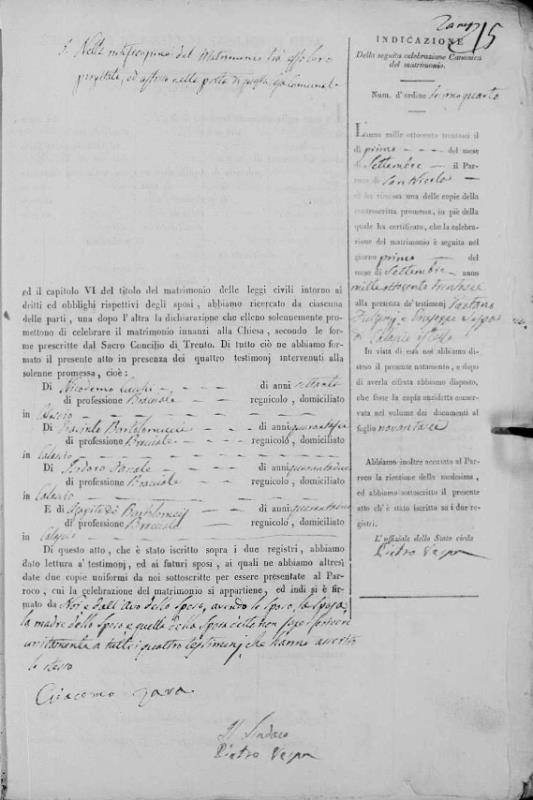 15
INDICAZIONE
Della seguita celebrazione Canonica
del matrimonio.
Num. d'ordine decimoquarto
L'anno mille ottocento trentasei il
dì primo - - - del mese
di Settembre - il Par-
roco di San Nicola -
ci ha rimessa una delle copie della
controscritta promessa, in piè della
quale ha certificato, che la celebra-
zione del matrimonio è seguita nel
giorno primo - - del
mese di Settembre - anno
mille ottocento trentasei
alla presenza de' testimonj Gaetano
e Giuseppe
di Calascio
In vista di essa noi abbiamo di-
steso il presente notamento, e dopo
di averla cifrata abbiamo disposto,
che fosse la copia anzidetta conser-
vata nel volume dei documenti al
foglio novantasei
Abbiamo inoltre accusato al Par-
roco la ricezione della medesima,
ed abbiamo sottoscritto il presente
atto ch'è stato iscritto su i due re-
gistri.
L'uffiziale dello Stato civile
Pietro Vespa
3. Nella del Matrimonio tra essoloro
ed affissa nelle porte di questa Casa Comunale
ed il capitolo VI del titolo del matrimonio delle leggi civili intorno ai
dritti ed obblighi rispettivi degli sposi, abbiamo ricercato da ciascuna
delle parti, una dopo l'altra la dichiarazione che elleno solennemente pro-
mettono di celebrare il matrimonio innanzi alla Chiesa, secondo le for-
me prescritte dal Sacro Concilio di Trento. Di tutto ciò ne abbiamo for-
mato il presente atto in presenza dei quattro testimonj intervenuti alla
solenne promessa, cioè:
Di Nicodemo - di anni settanta
di professione Bracciale regnicolo, domiciliato
in Calascio - - -
Di Giacinto Bartolomucci di anni
di professione Bracciale regnicolo, domiciliato
in Calascio - - -
Di Isidoro - di anni quarantadue
di professione Bracciale regnicolo, domiciliato
in Calascio - - -
E di Agapito di Bartolomeis di anni
di professione Bracciale regnicolo, domiciliato
in Calascio - - -
Di questo atto, che è stato iscritto sopra i due registri, abbiamo
dato lettura a' testimonj, ed ai futuri sposi, ai quali ne abbiamo altresì
date due copie uniformi da noi sottoscritte per essere presentate al Par-
roco, cui la celebrazione del matrimonio si appartiene, ed indi si è fir-
mato da Noi e dall'Avo dello Sposo, avendo lo Sposo, la Sposa,
la madre dello Sposo e quella della Sposa detto non saper scrivere
unitamente a tutti i quattro testimonj che hanno asserito
lo stesso
Giacomo Zara
Il Sindaco
Pietro Vespa